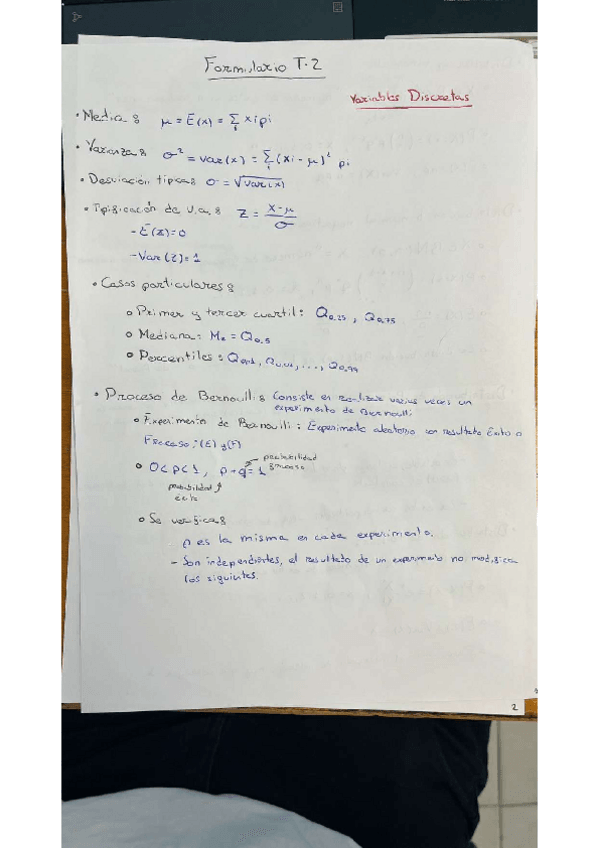 Formulario T.2
Variables Discretas
• Media: μ = E(x) = Σ xi pi
• Varianza: σ² = var(x) = Σ (xi - μ)² pi
• Desviación típica: σ = √var(x)
• Tipificación de v.a.: Z = x-μ / σ
- E(z)=0
- Var(Z)=1
• Casos particulares:
o Primer y tercer cuartil: Q0,25, Q0,75
o Mediana: Me = Q0,5
o Percentiles: Q0,01, Q0,02, ..., Q0,99
• Proceso de Bernouilli: Consiste en realizar varias veces un
experimento de Bernoulli
o Experimento de Bernouilli: Experimento aleatorio con resultado Éxito o
Fracaso: (E) y (F)
o 0<p<1, p+q=1 probabilidad fracaso
probabilidad éxito
o Se verifica:
p es la misma en cada experimento.
- Son independientes, el resultado de un experimento no modifica
los siguientes.
2